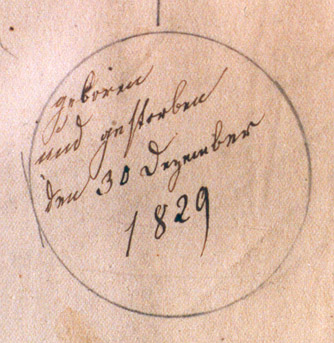 geboren
und gestorben
den 30 Dezember
1829